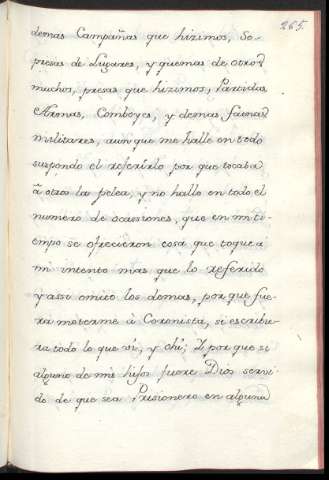 265.
demas Campañas que hizimos, So-
presas de Lugares, y quemas de otros
muchos, presas que hizimos, Partidas
Arenas, Comboyes, y demas faenas
militares, aunque me halle en todo
suspondo el referirlo por que tocaba
â otros la pelea, y no hallo en todo el
numero de ocassiones, que en mi ti-
empo se ofrecieron cosa que toque a
mi intento mas que lo referido
y assi omito los demas, por que fue-
ra meterme â Coronista, si escribie-
ra todo lo que vi, y ohi; Y por que si
alguno de mis hijos fuere Dios servi-
do de que sea Prisionero en alguna